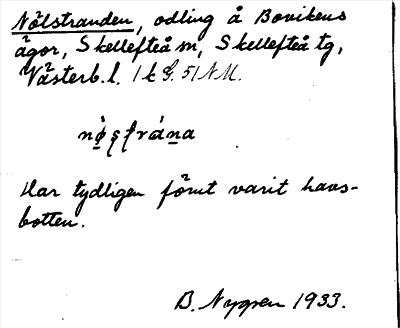 Nölstranden, odling å Bovikens
ägor, Skellefteå sn, Skellefteå tg,
Västerb. l.
Har tydligen förut varit havs-
botten.
B. Nygren 1933.